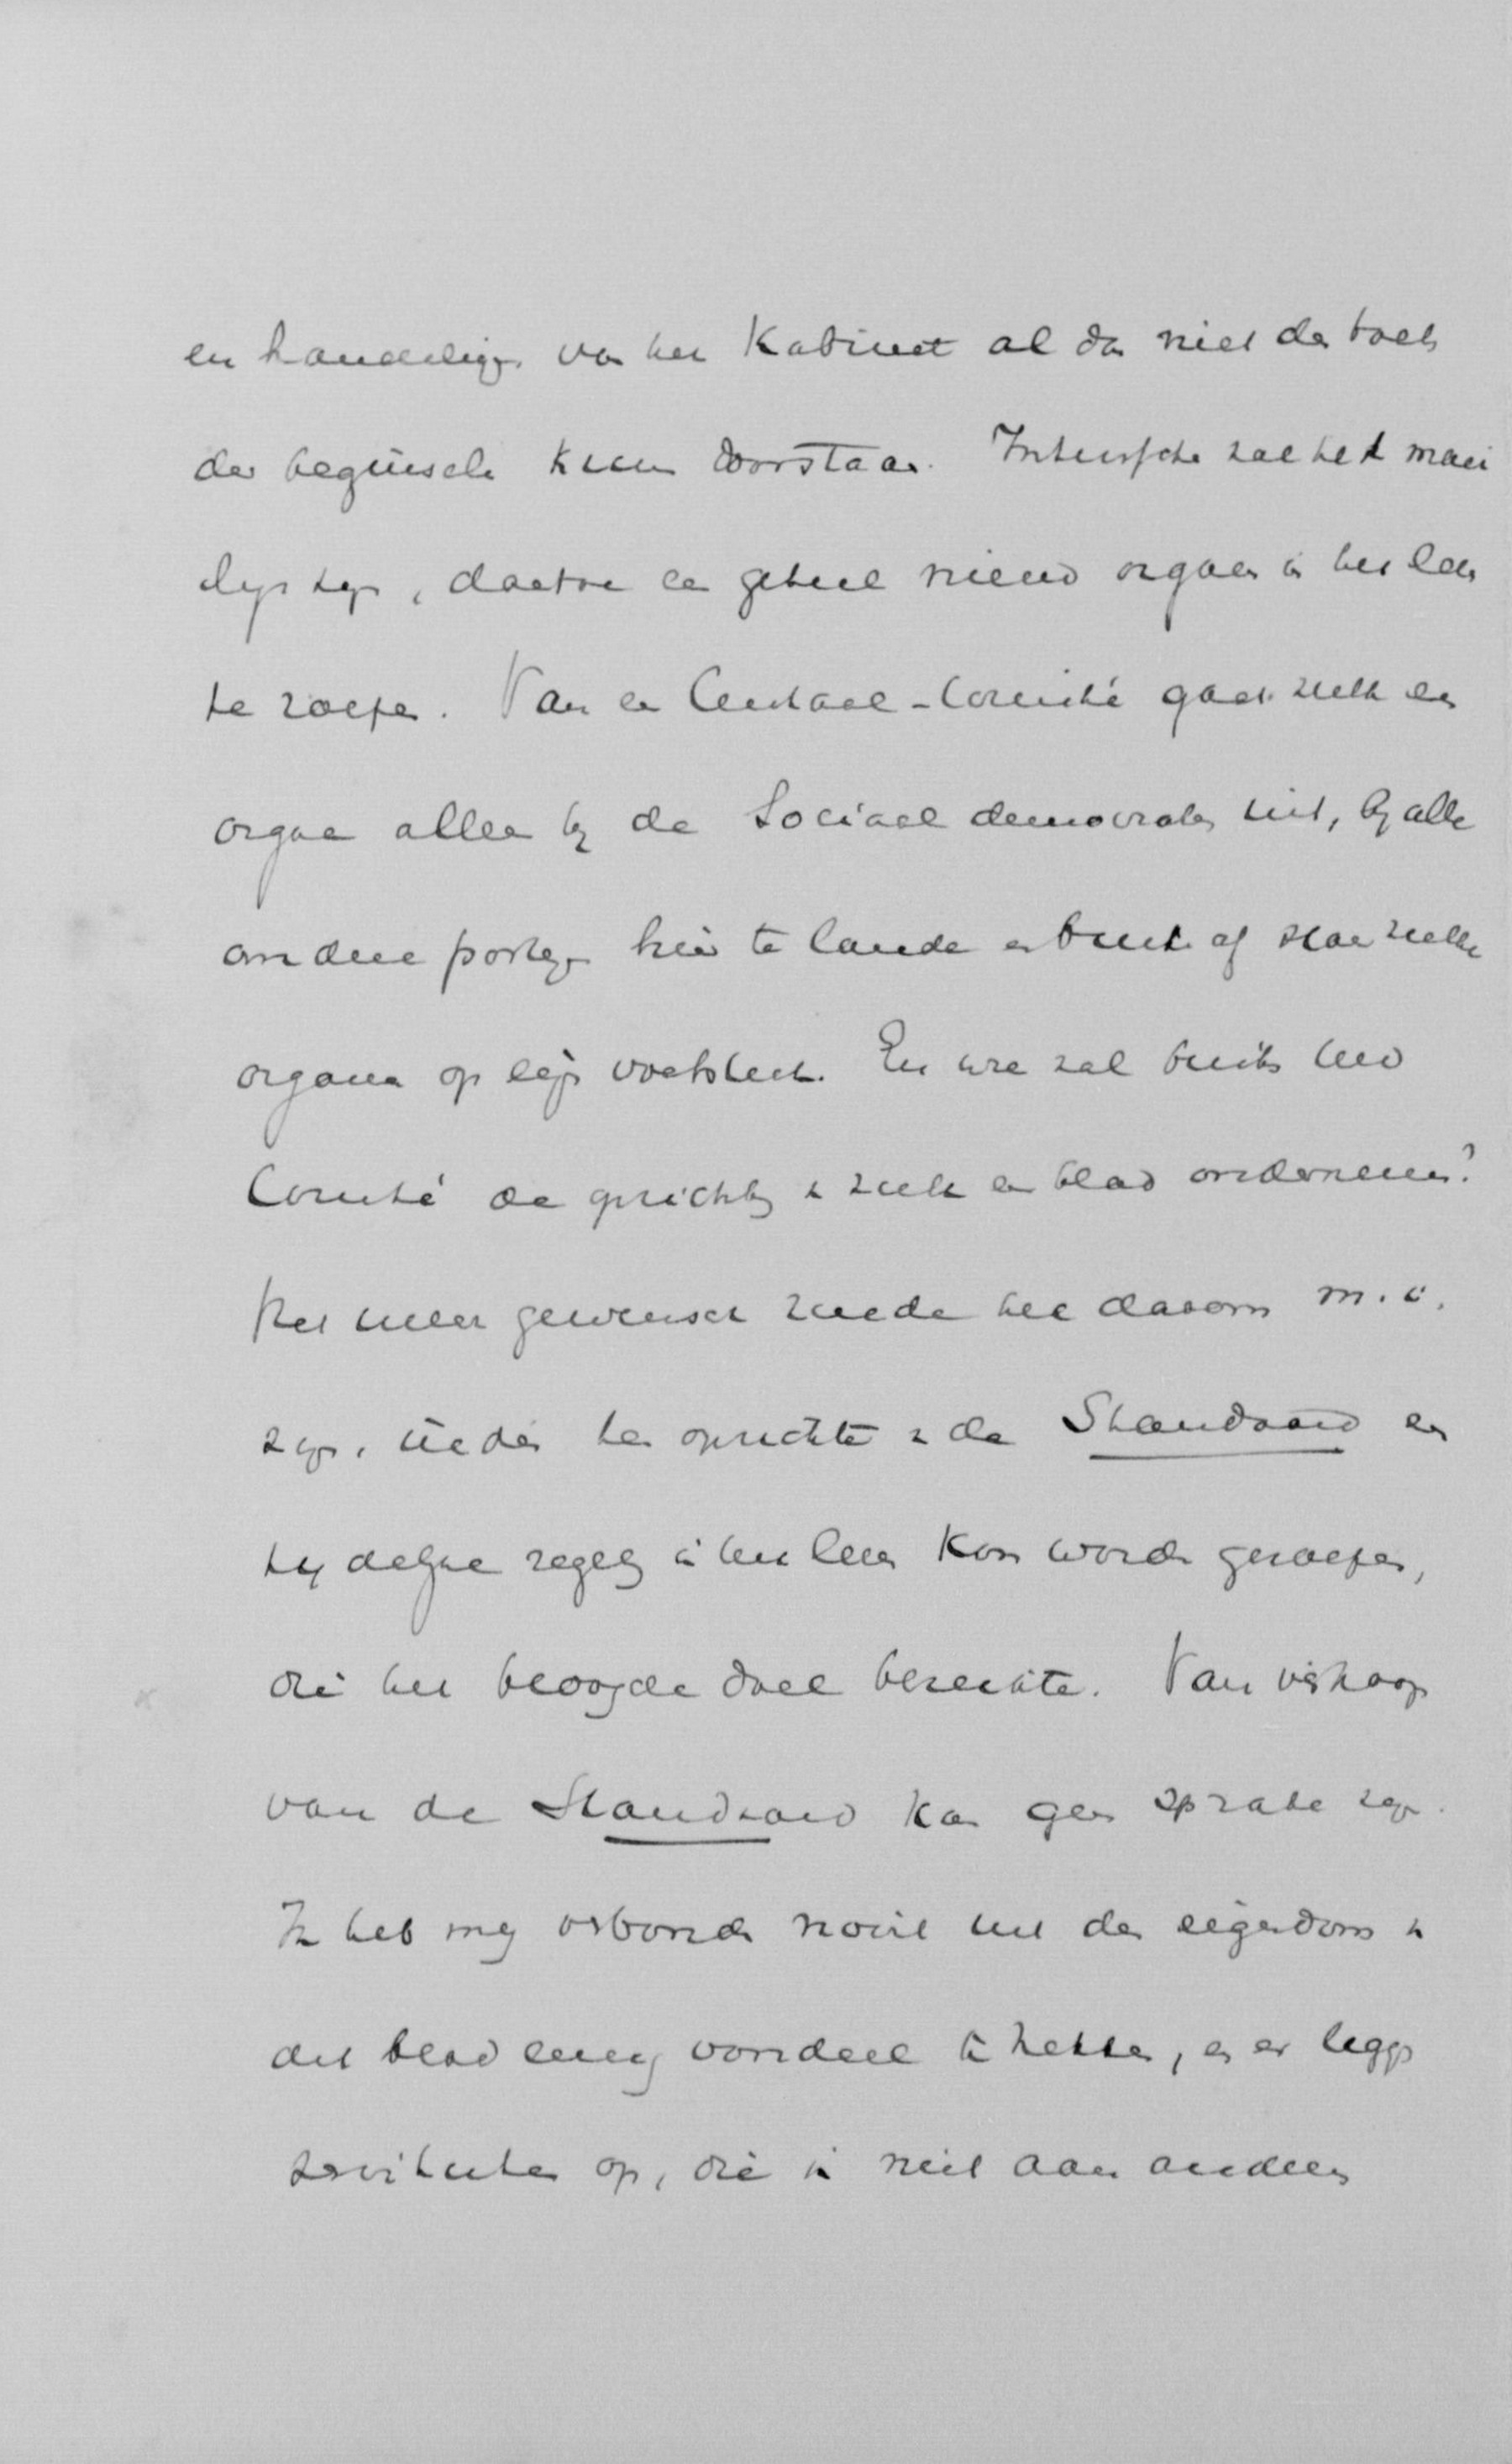 en handelingen van het Kabinet al dan niet de toets
der beginselen kunnen doorstaan. Intusschen zal het moei
lijk zijn, daartoe een geheel nieuw orgaan in het leven
te roepen. Van een Centraal-Comité gaat zulk een
orgaan alleen bij de Sociaal democraten uit, bij alle
andere partijen hier te lande en buiten af staan zulke
organen op eigen voetstuk. En wie zal buiten het
Comité de oprichting van zulk een blad ondernemen?
Het meer gewenscht zoude het daarom m. i.
zijn, indien ten opzichte van de Standaard een
tijdelijke regeling in het leven kon worden geroepen,
die het beoogde doel bereikte. Van verkoop
van de Standaard kan geen sprake zijn.
Ik heb mij verbonden nooit uit den eigendom van
dat blad eenig voordeel te trekken, en er liggen
servituten op, die ik niet aan anderen